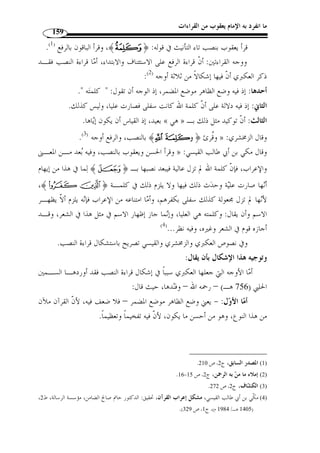 ما انفرد به الإمام يعقوب من القراءات
159
قرأ يعقوب بنصب تاء التأنيث في قوله: ﴿وَكَلِمَةُ﴾، وقرأ الباقون بالرفع (1).
ووجه القراءتين: أنّ قراءة الرفع على الاستئناف والابتداء، أمّا قراءة النصب فقد
ذكر العكبري أنّ فيها إشكالاً من ثلاثة أوجه (2):
أحدها: إذ فيه وضع الظاهر موضع المضمر، إذ الوجه أن تقول: "كلمتَه".
الثاني: إذ فيه دلالة على أنّ كلمة الله كانت سفلى فصارت عليا، وليس كذلك.
الثالث: أنّ توكيد مثل ذلك بـ «هي» بعيد، إذ القياس أن يكون إيّاها.
وقال الزمخشري: «وقُرئ ﴿وَكَلِمَةُ اللَّهِ﴾ بالنصب، والرفع أوجه (3).
وقال مكي بن أبي طالب القيسي: «وقرأ الحسن ويعقوب بالنصب، وفيه بُعد من المعنى
والإعراب، فإنّ كلمة الله لم تزل عالية فيبعد نصبها بـ ﴿وَجَعَلَ﴾ إنما في هذا من إيهام
أنّها صارت عليّة وحدث ذلك فيها ولا يلزم ذلك في كلمـــة ﴿الَّذِينَ كَفَرُوا﴾،
لأنها لم تزل مجعولة كذلك سفلى بكفرهم، وأمّا امتناعه من الإعراب فإنّه يلزم ألّا يظهر
الاسم وأن يقال: وكلمته هي العليا، وإنّما جاز إظهار الاسم في مثل هذا في الشعر، وقد
أجازه قوم في الشعر وغيره، وفيه نظر... (4)
وفي نصوص العكبري والزمخشري والقيسي تصريح باستشكال قراءة النصب.
وتوجيه هذا الإشكال بأن يقال:
أمّا الأوجه التي جعلها العكبري سبباً في إشكال قراءة النصب فقد أوردها السمين
الحلبي (756 هـ) – رحمه الله – وفنّدها، حيث قال:
أمّا الأوّل: - يعني وضع الظاهر موضع المضمر – فلا ضعف فيه، لأنّ القرآن ملآن
من هذا النوع، وهو من أحسن ما يكون، لأنّ فيه تفخيماً وتعظيماً.
(1) المصدر السابق، ج2، ص 210.
(2) إملاء ما منّ به الرحمن، ج2، ص 15-16.
(3) الكشّاف، ج2، ص 272.
(4) مكّي بن أبي طالب القيسي، مشكل إعراب القرآن، تحقيق: الدكتور حاتم صالح الضامن، مؤسسة الرسالة، ط2،
(1405 هـ - 1984 م)، ج1، ص 329.